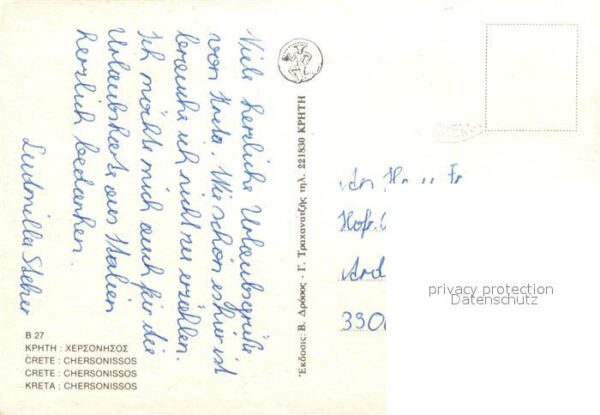 Viele herzliche Urlaubsgrüße
von Kreta. Wie schön es hier ist
brauche ich nicht zu erzählen.
Ich möchte mich auch für die
Urlaubskarte aus Italien
herzlich bedanken.
Ludmilla Steber
B 27
ΚΡΗΤΗ : ΧΕΡΣΟΝΗΣΟΣ
CRETE : CHERSONISSOS
CRETE : CHERSONISSOS
KRETA : CHERSONISSOS
Ἔκδοσις: Β. Δρόσος - Γ. Τραχανατζῆς τηλ. 221830 ΚΡΗΤΗ
An
Hofr.
And
330
privacy protection
Datenschutz